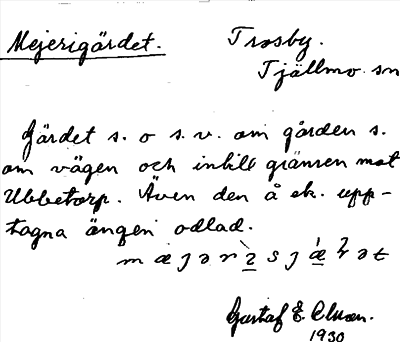 Mejerigärdet. Trosby.
Tjällmo sn
Gärdet s. o s.v. om gården s.
om vägen och intill gränsen mot
Ubbetorp. Även den å ek. upp-
tagna ängen odlad.
Gustaf E. 
1930